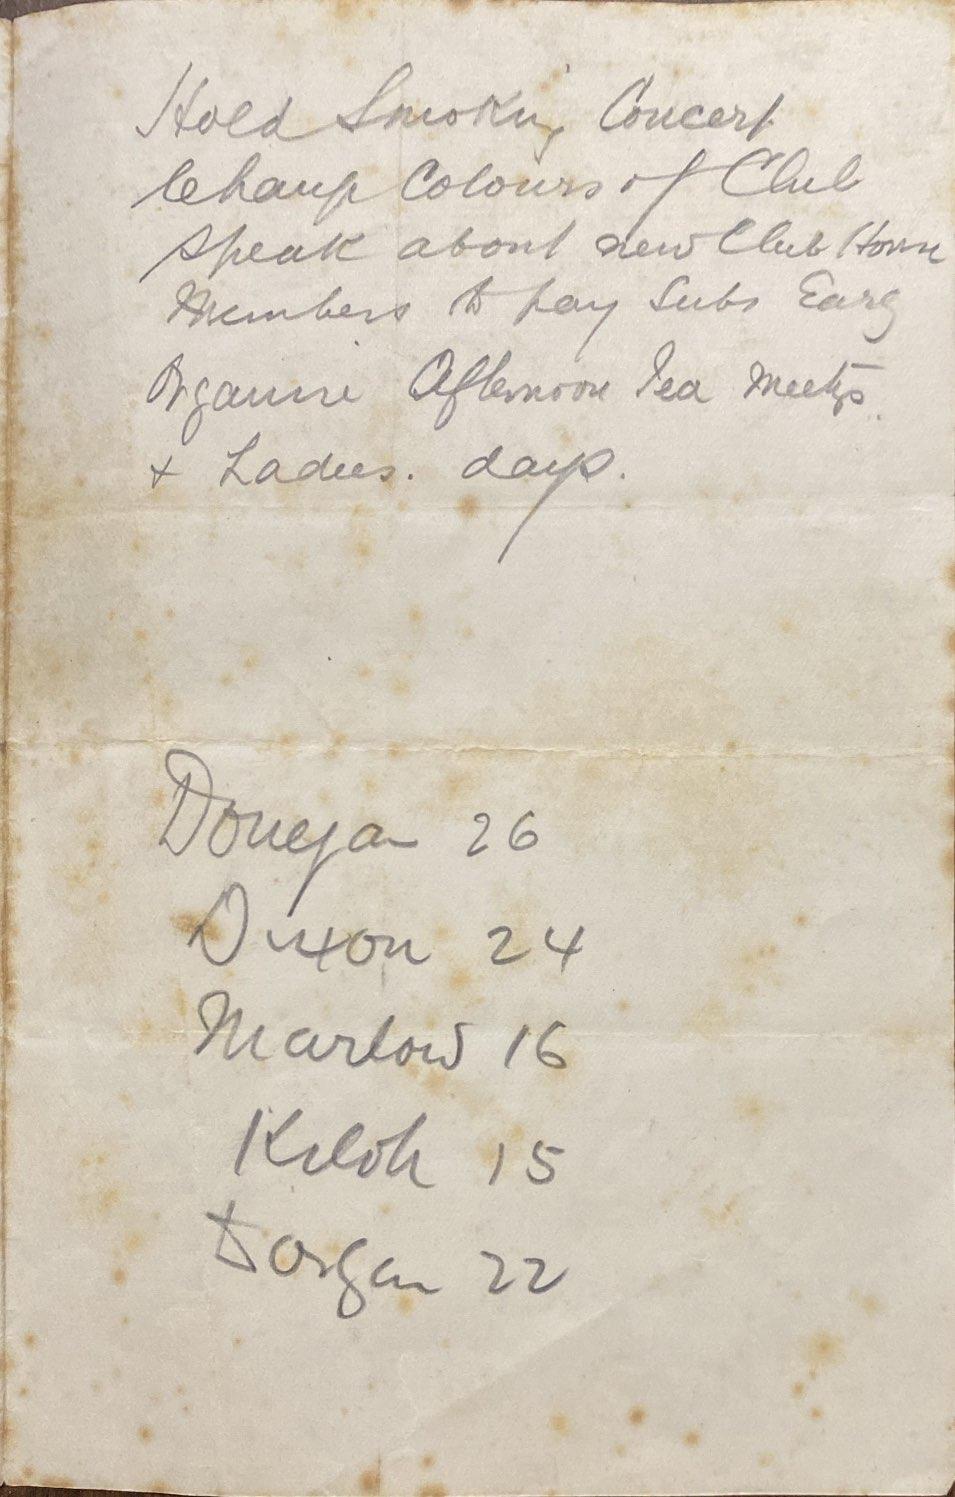 Hold Smoking Concert
Change Colours of Club
Speak about new Club House
Members to pay Subs Early
Organise Afternoon Tea Meetgs.
+ Ladies. days.
Donegan 26
Dixon 24
Marlow 16
Kiloh 15
Dorgan 22